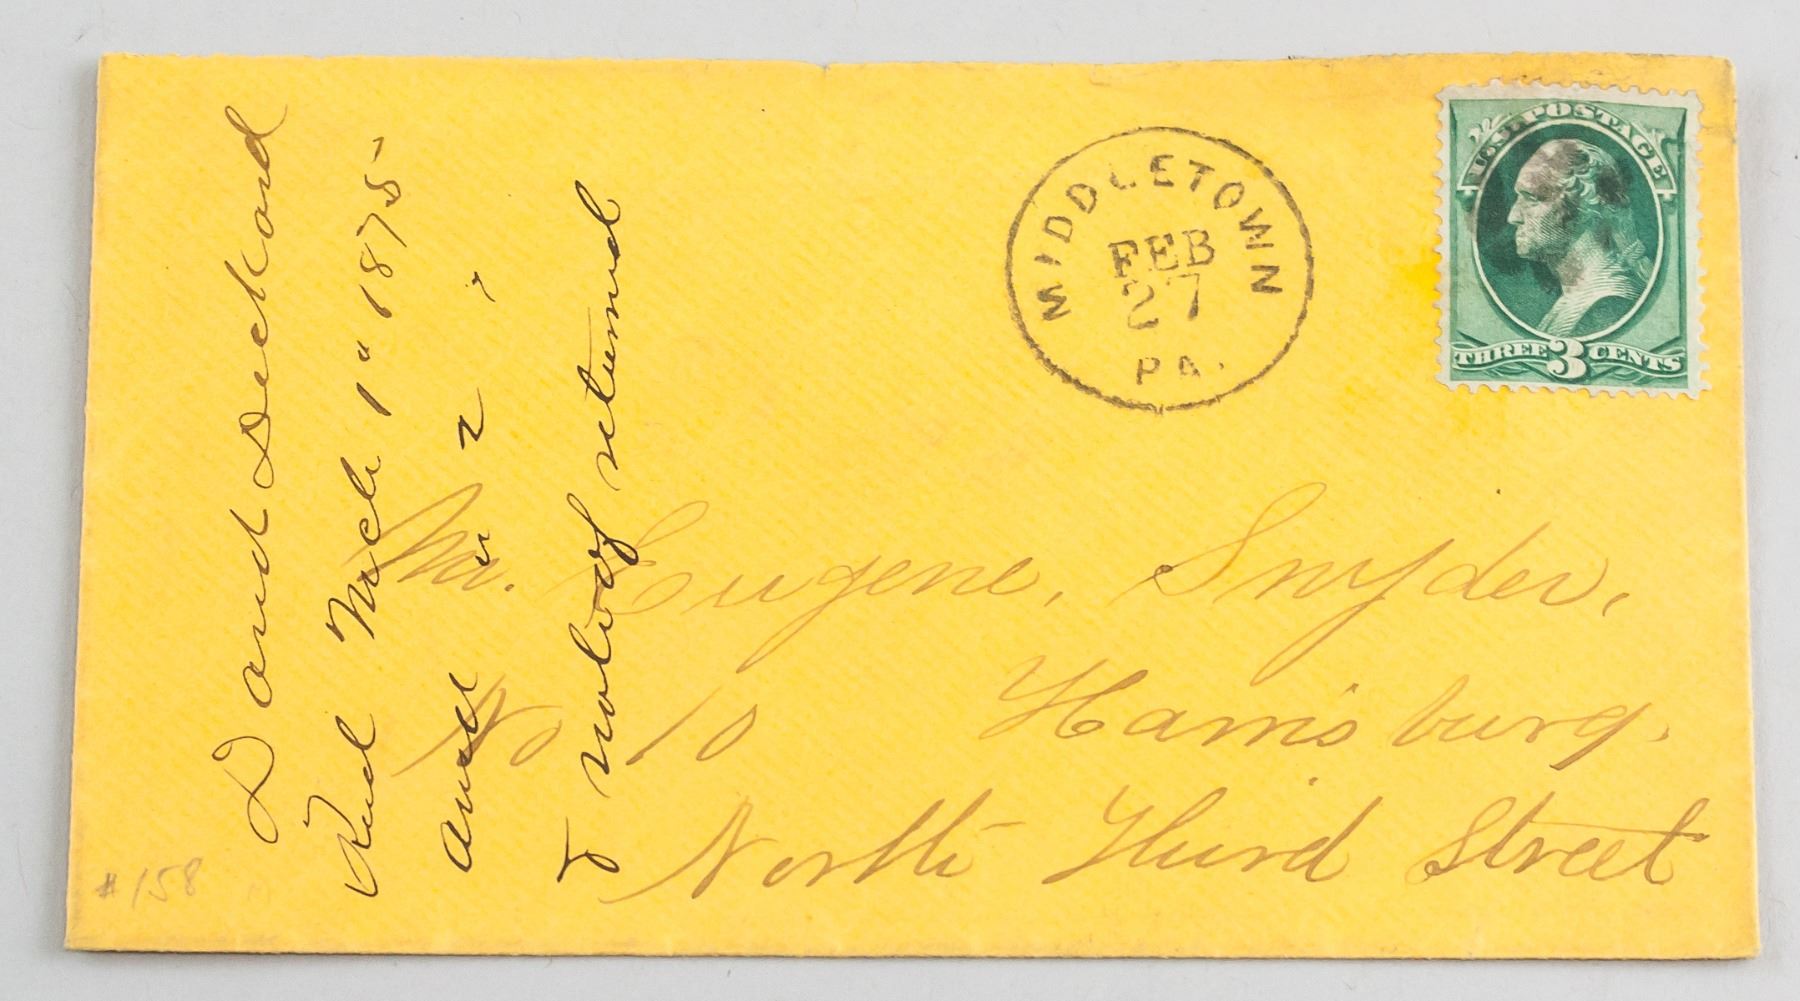 U.S. POSTAGE
THREE 3 CENTS
MIDDLETOWN
FEB
27
PA.
Mr. Eugene, Snyder,
No 10 Harrisburg.
North Third Street
David Deckard
Recd Mch 1" 1875-
ansd " 2 "
& returned
# 158